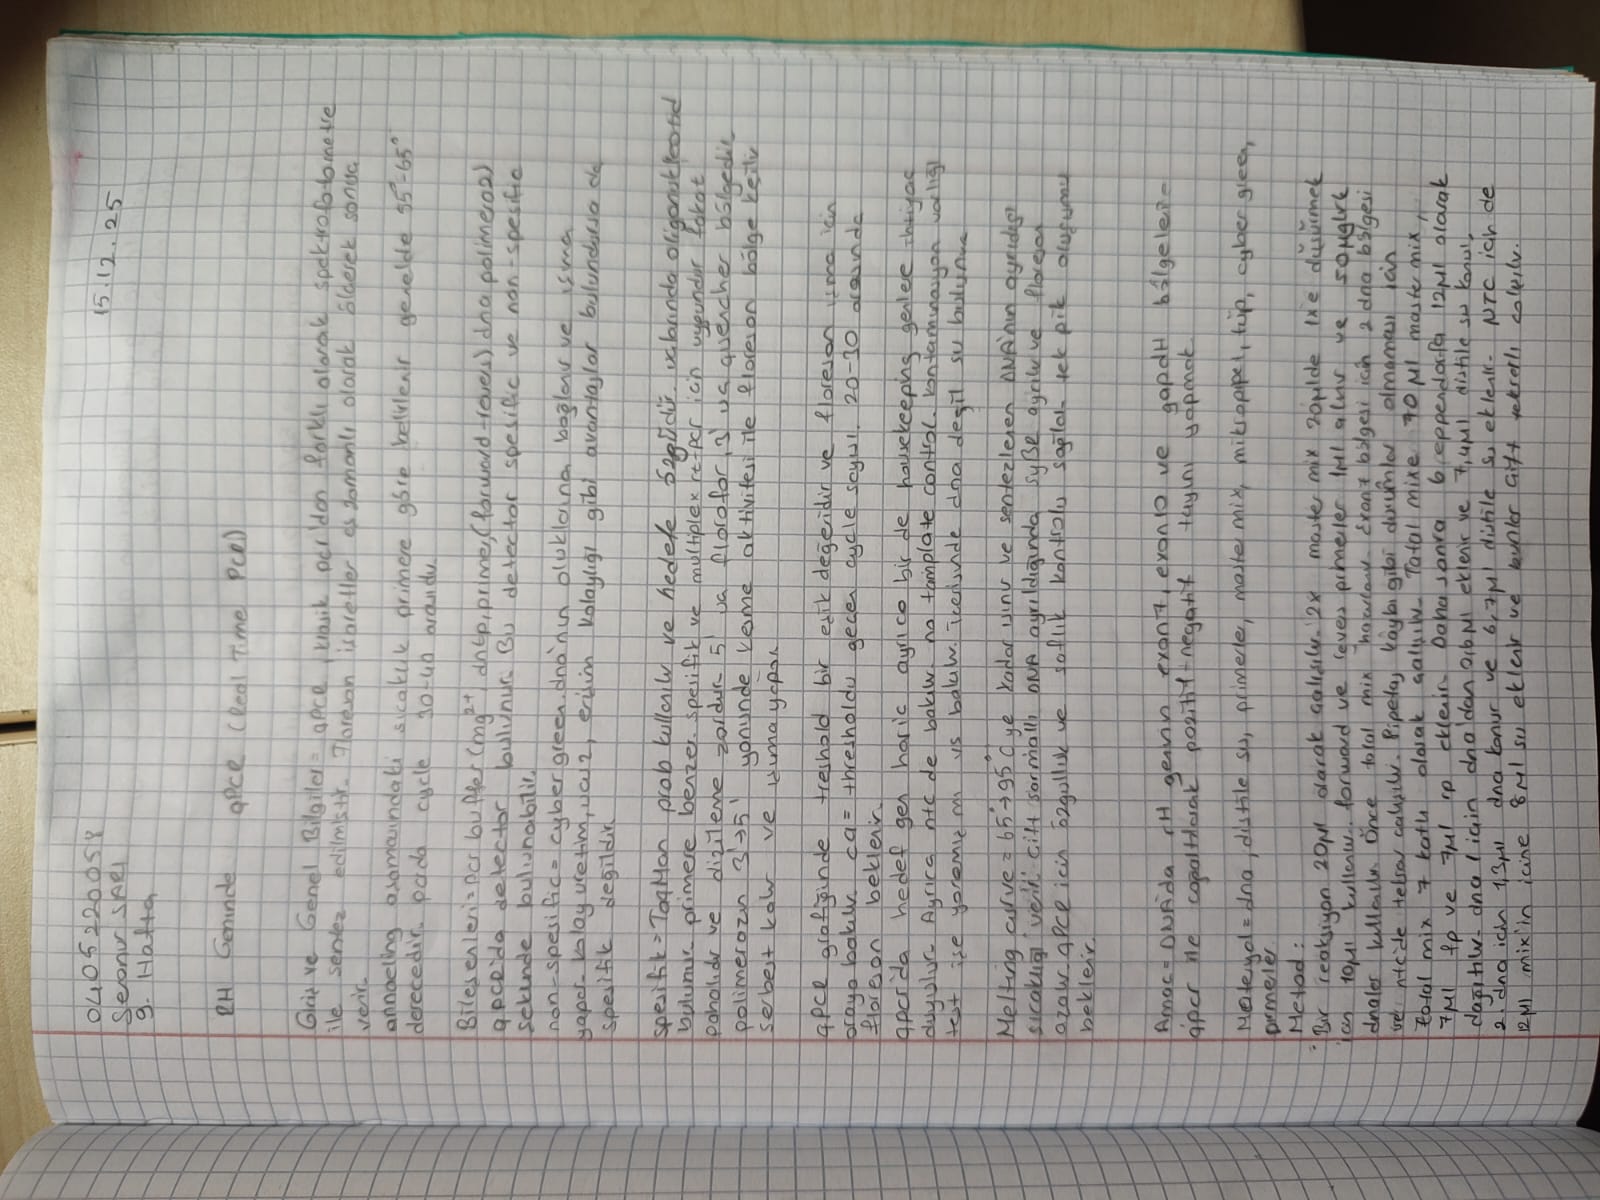 15.12.25
0405220058
Şeanur SARI
9. Hafta
RH Geninde qPCR (Real Time PCR)
Giriş ve Genel Bilgiler = qPCR, klasik pcr'dan farklı olarak spektrofotometre
ile sentez edilmiştir. Floresan işaretler eş zamanlı olarak ölçerek sonuç
verir.
annaeling aşamasındaki sıcaklık primere göre belirlenir genelde 55°-65°
derecedir. parda cycle 30-40 arasıdır.
Bileşenleri = pcr buffer (mg2+, dntp, primer, (forward-revers) dna polimeraz)
qPCR'da detector bulunur. Bu detector spesific ve non spesific
şekunde bulunabilir.
non-spesific = cybergreen dna'nın oluklarına bağlanır ve ışıma
yapar. kolay üretim, ucuz, erişim kolaylığı gibi avantajlar bulundursa da
spesifik değildir.
Spesifik = TaqMan prob kullanılır ve hedefe özgüdür. uclarında oligonükleotid
bulunur primere benzer. spesifik ve multiplex rt-pcr için uygundur fakat
pahalıdır ve dizileme zordur. 5' ya florofor, 3' ya quencher bölgedir.
polimerazın 3'→5' yönünde kesme aktivitesi ile floresan bölge kesilir
serbest kalır ve ışıma yapar.
qPCR grafiğinde treshold bir eşik değeridir ve floresan ışıma için
olaya bakılır. cq = thresholdu geçen cycle sayısı. 20-30 arasında
floresan beklenir.
qPCR'da hedef gen hariç ayrıca bir de housekeeping genlere ihtiyaç
duyulur. Ayrıca ntc de bakılır. no tamplate control. kontaminasyon varlığı
test ise yaramış mı vs bakılır. İcerisinde dna değil su bulunur.
Melting curve = 65°→95°C ye kadar ısınır ve sentezlenen DNA'nın ayrıldığı
sıcaklığı verir. çift sarmallı DNA ayrıldığında SYBR ayrılır ve floresan
azalır. qPCR için özgüllük ve saflık kontrolü sağlar. tek pik oluşumu
beklenir.
Amaç = DNA'da rH genin exon7, exon10 ve gapdH bölgelerin=
qpcr ile cogaltılarak pozitif negatif tayini yapmak.
Materyal = dna, distile su, primerler, master mix, mikropipet, tüp, cyber green,
primerler.
Metod:
Bir reaksiyon 20µl olarak çalışılır. 2x master mix 20µlde 1x'e düşürmek
icin 10µl kullanılır. forward ve revers primerler 1µl alınır ve 50nglık
dnalar kullanılır. Önce total mix hazırlanır. exon7 bölgesi için 2 dna bölgesi
ve ntc'de tekrar calışılır. Pipetaj kaybı gibi durumlar olmaması için
total mix 7 katlı olarak çalışılır. Total mixe 70 µl mastermix,
7µl fp ve 7µl rp eklenir. Daha sonra 6 eppendorfa 12µl olarak
dağıtılır. dna 1 için dna1'den 0,6µl eklenir ve 7,4µl distile su konur,
2. dna için 1,3µl dna konur ve 6,7µl distile su eklenir. NTC icin de
12µl mix'in icine 8µl su eklenir ve bunlar çift tekrarlı calışılır.